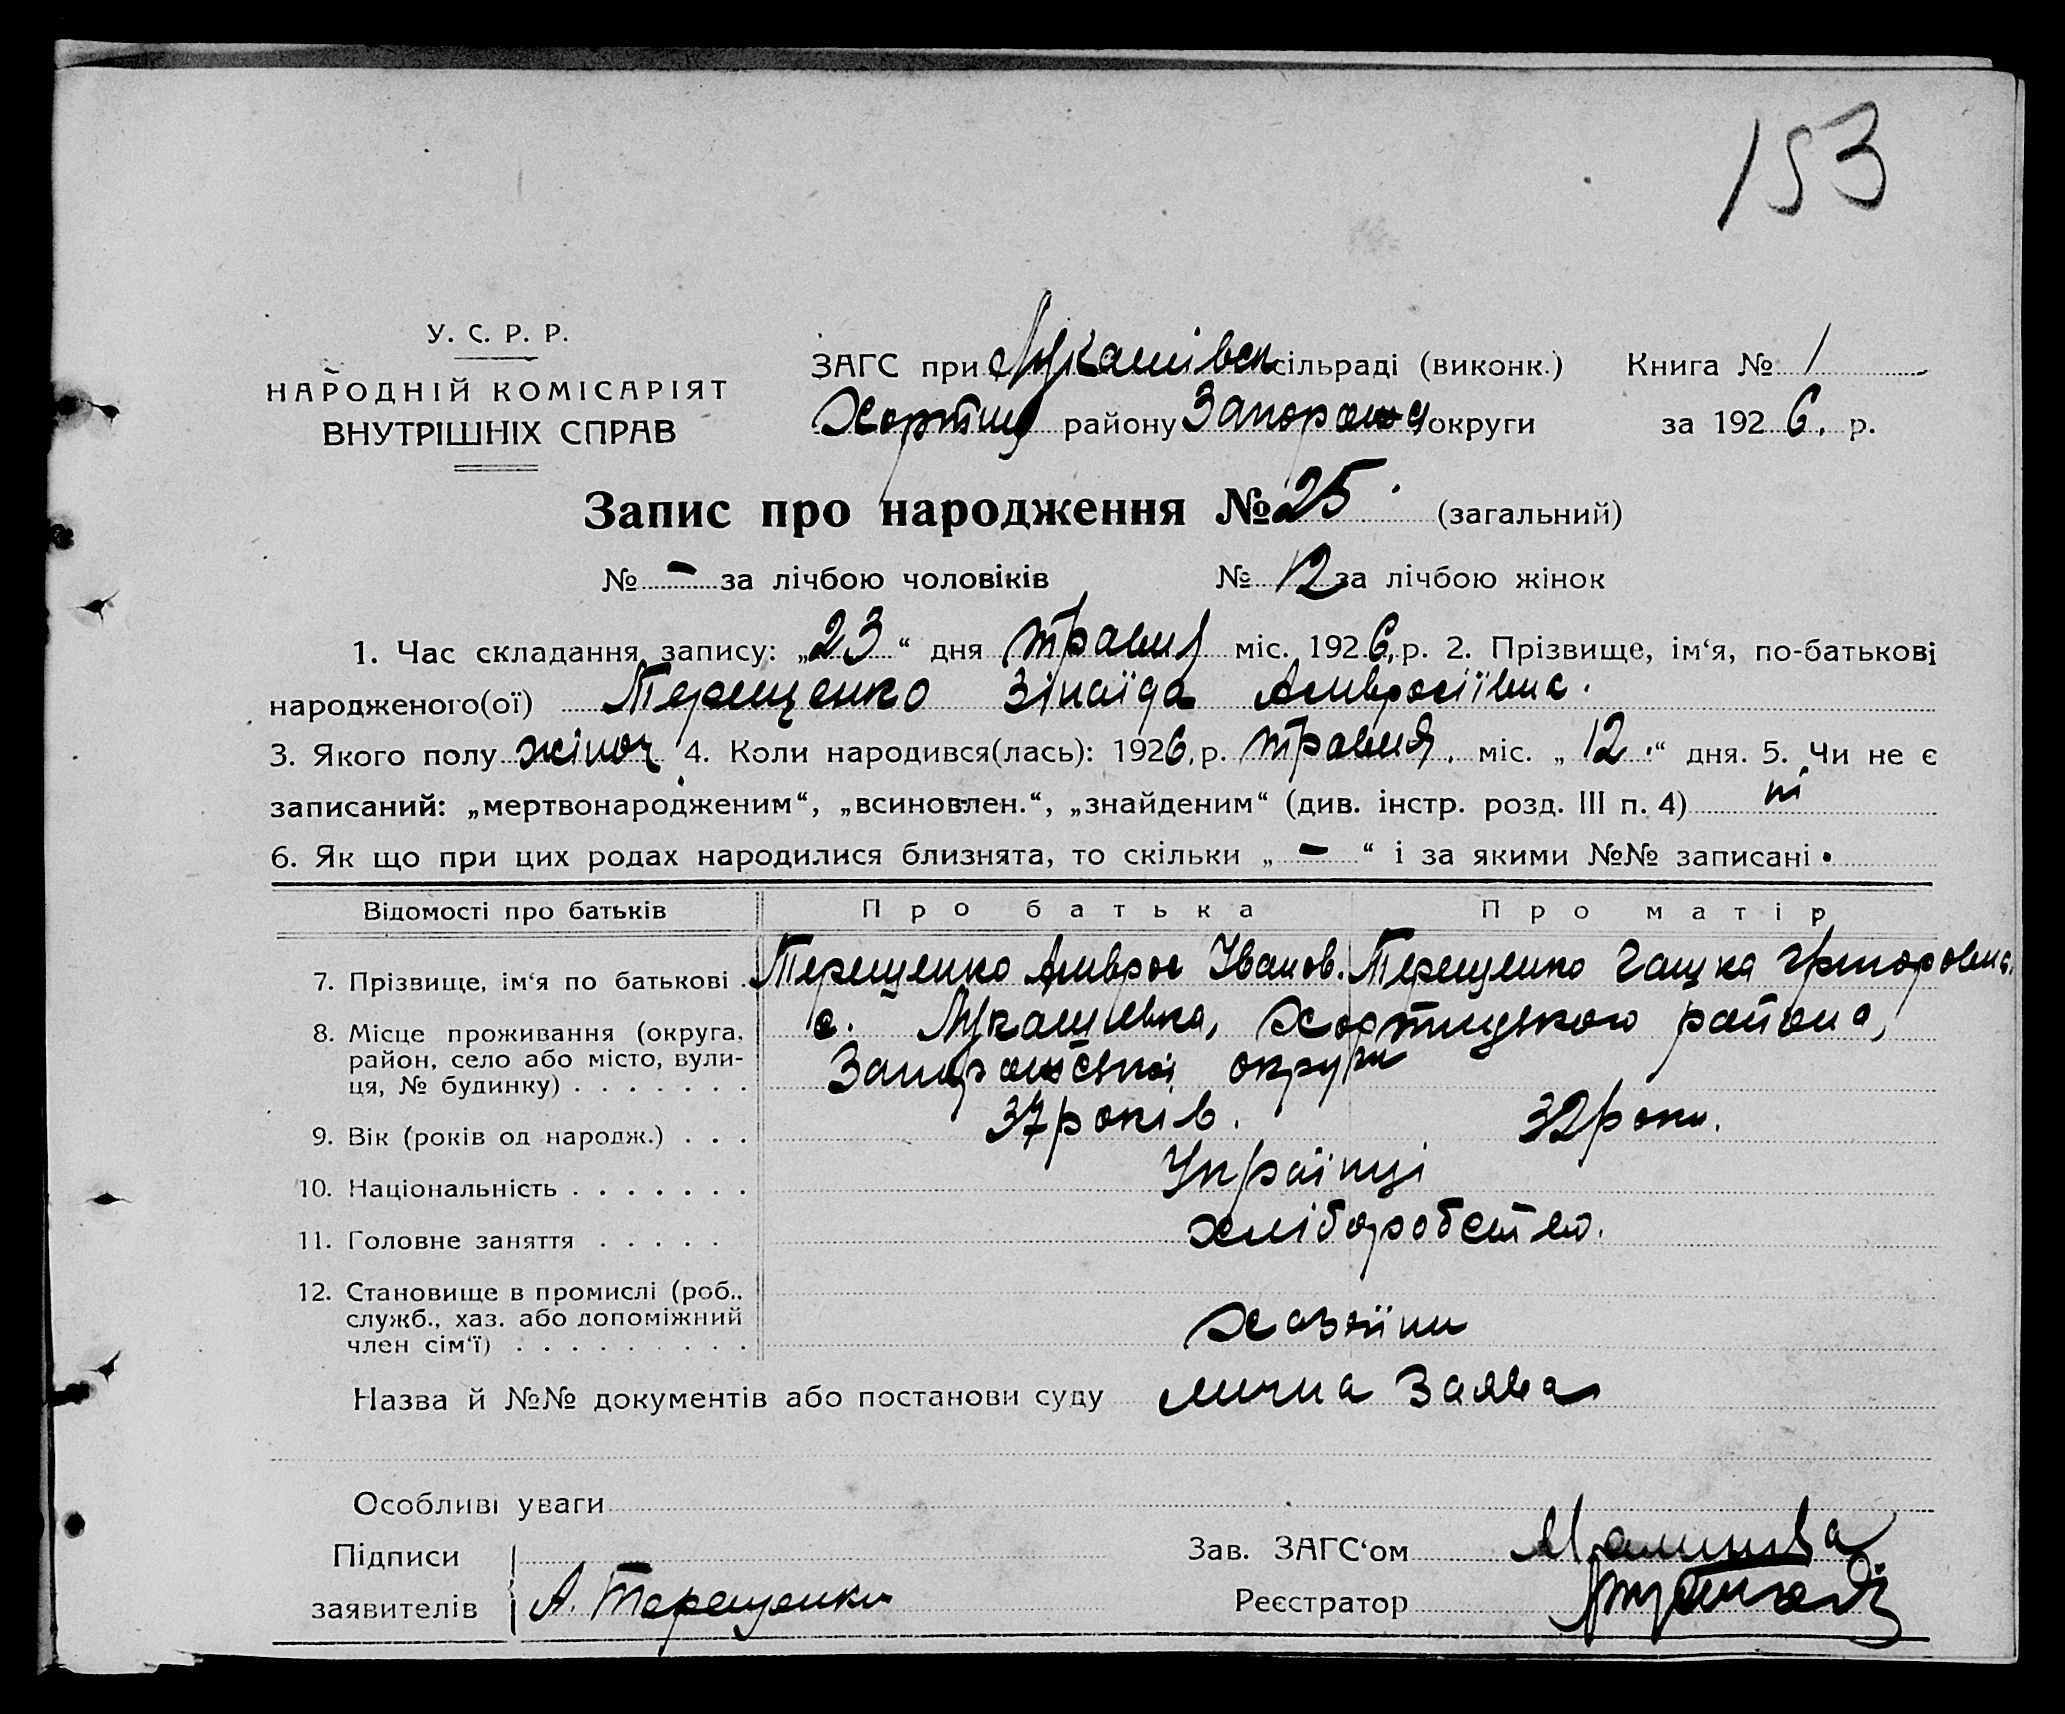 153
У. С. Р. Р.
НАРОДНІЙ КОМІСАРІЯТ
ВНУТРІШНІХ СПРАВ
ЗАГС при Лукашівск сільраді (виконк.) Книга № 1
Хортиц району Запорож округи за 1926, р.
Запис про народження № 25. (загальний)
№ – за лічбою чоловіків № 12 за лічбою жінок
1. Час складання запису: „23“ дня травня міс. 1926, р. 2. Прізвище, ім‘я, по-батькові
народженого(ої) Терещенко Зінаїда Амвросіївна.
3. Якого полу жіноч 4. Коли народився(лась): 1926, р. травня, міс. „12.“ дня. 5. Чи не є
записаний: „мертвонародженим“, „всиновлен.“, „знайденим“ (див. інстр. розд. III п. 4) ні
6. Як що при цих родах народилися близнята, то скільки „–“ і за якими №№ записані
Відомості про батьків Про батька Про матір
7. Прізвище, ім‘я по батькові . Терещенко Амврос Іванов. Терещенко Гашка Григоровна,
8. Місце проживання (округа, с. Лукашевка, Хортицького района,
район, село або місто, вули-
ця, № будинку) . . . . . . . Запорожської округи
9. Вік (років од народж.) . . . 37 років. 32 роки.
10. Національність . . . . . . . Українці
11. Головне заняття . . . . . хліборобство.
12. Становище в промислі (роб.,
служб., хаз. або допоміжний
член сім‘ї) . . . . . . . . . хазяїни
Назва й №№ документів або постанови суду лична заява
Особливі уваги
Підписи
Зав. ЗАГС‘ом
заявителів А. Терещенко
Реєстратор